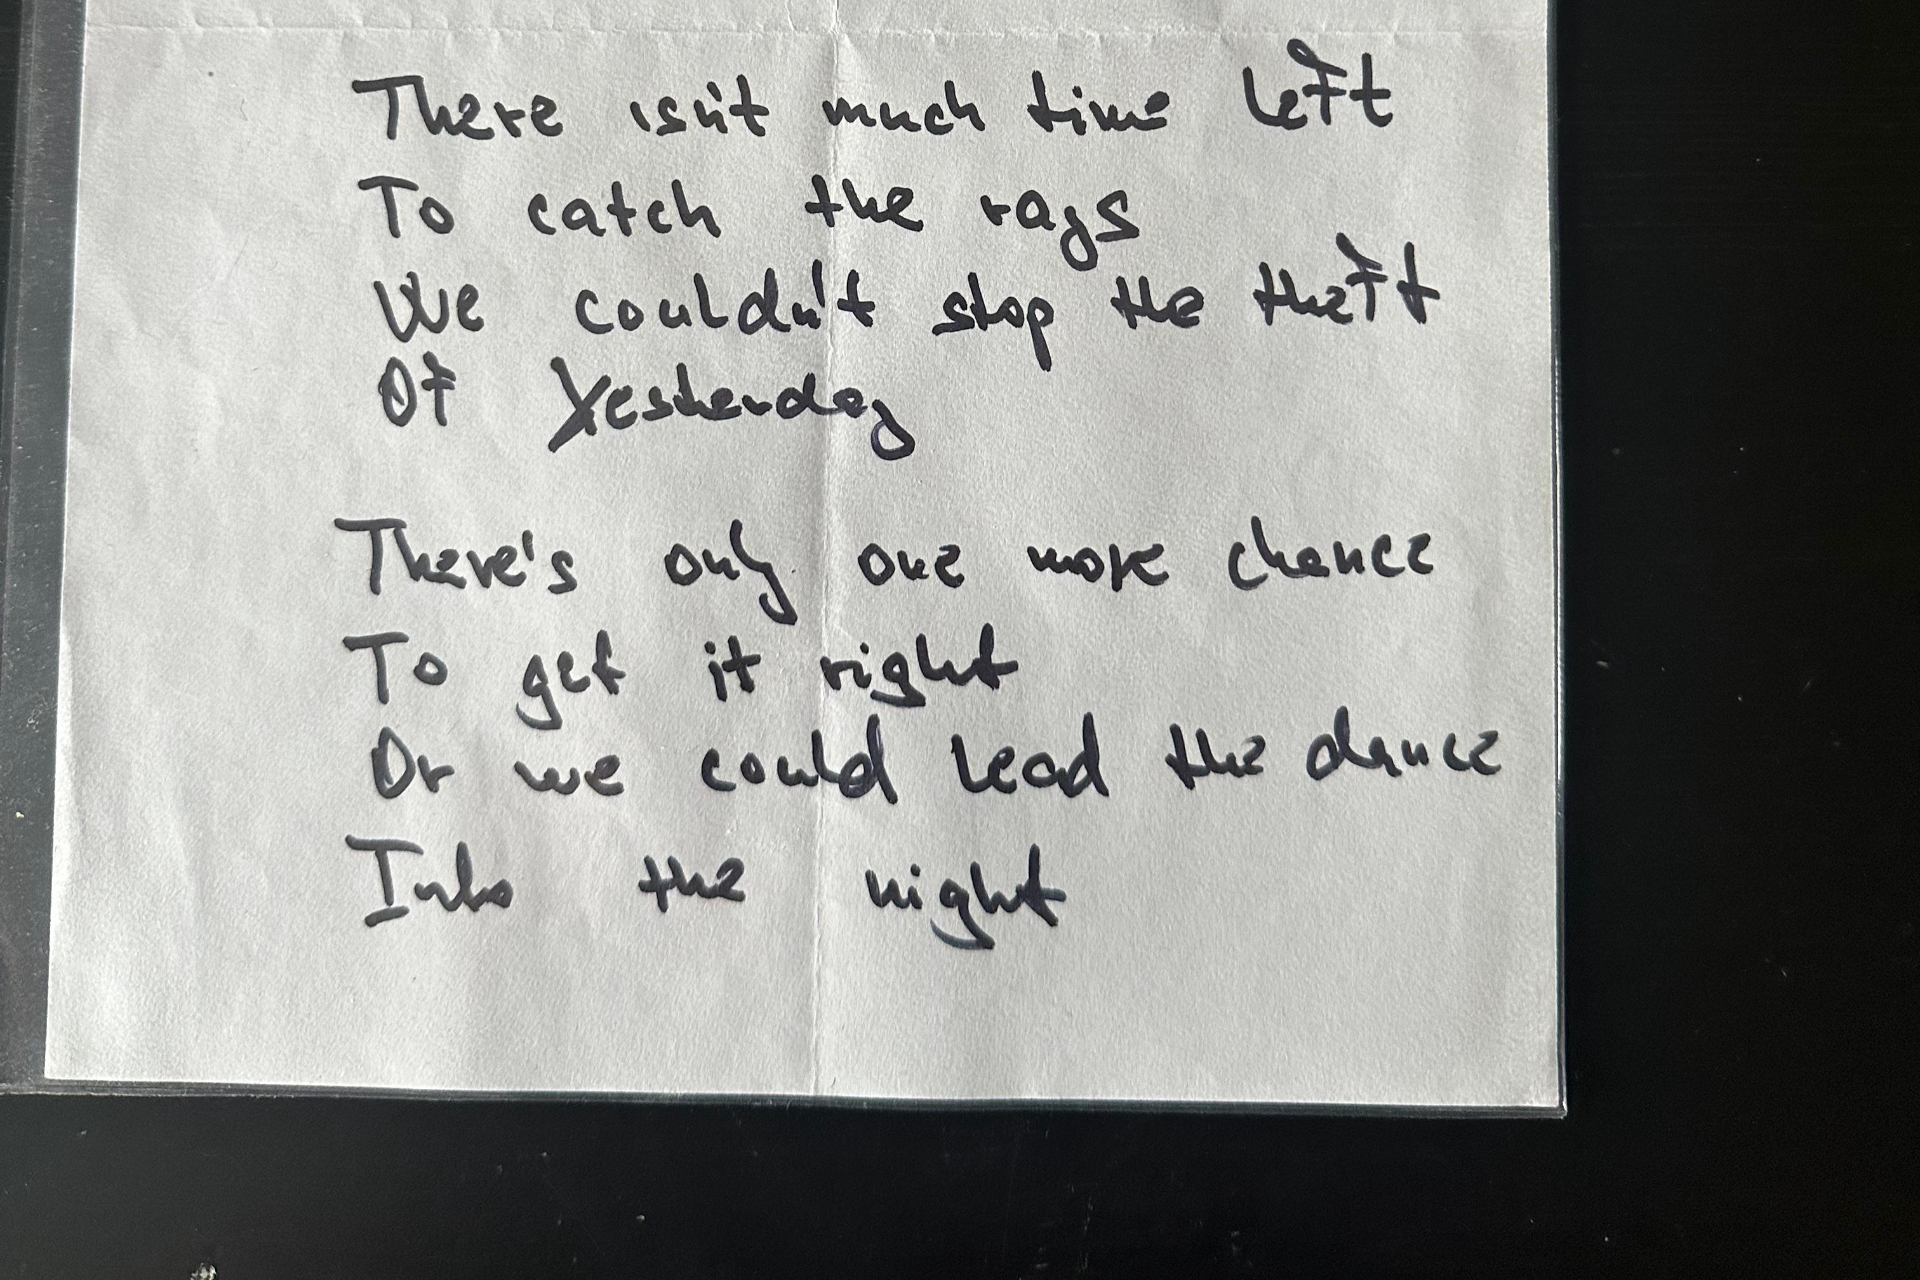 There isn't much time left
To catch the rays
We couldn't stop the theft
Of Yesterday
There's only one more chance
To get it right
Or we could lead the dance
Into the night